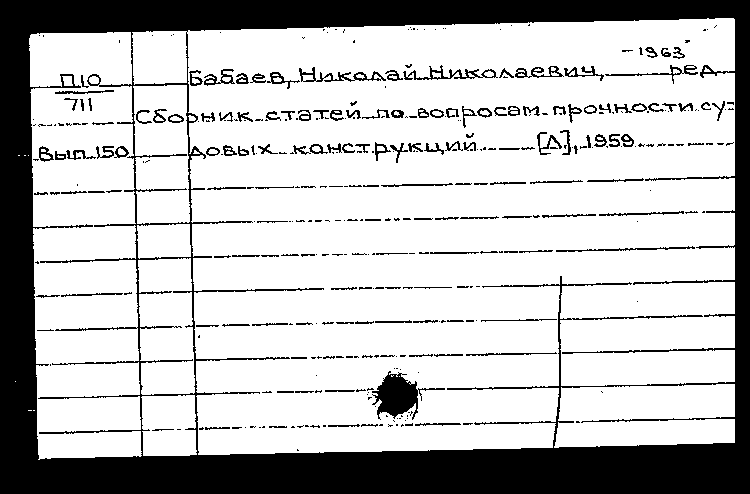 -1963
П10 Бабаев, Николай Николаевич, ред
711
Сборник статей по вопросам прочности су-
Вып. 150 довых конструкций [Л], 1959